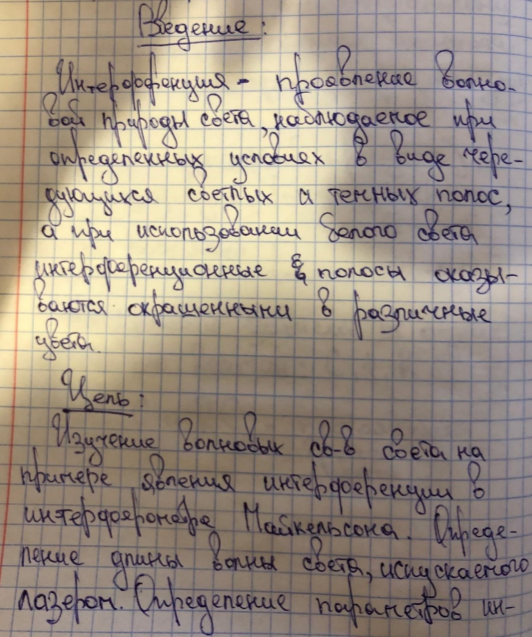 Введение:
Интерференция - проявление волно-
вой природы света, наблюдаемое при
определенных условиях в виде чере-
дующихся светлых и темных полос,
а при использовании белого света
интерференционные полосы оказы-
ваются окрашенными в различные
цвета.
Цель:
Изучение волновых св-в света на
примере явления интерференции в
интерферометре Майкельсона. Опреде-
ление длины волны света, испускаемого
лазером. Определение параметров ин-